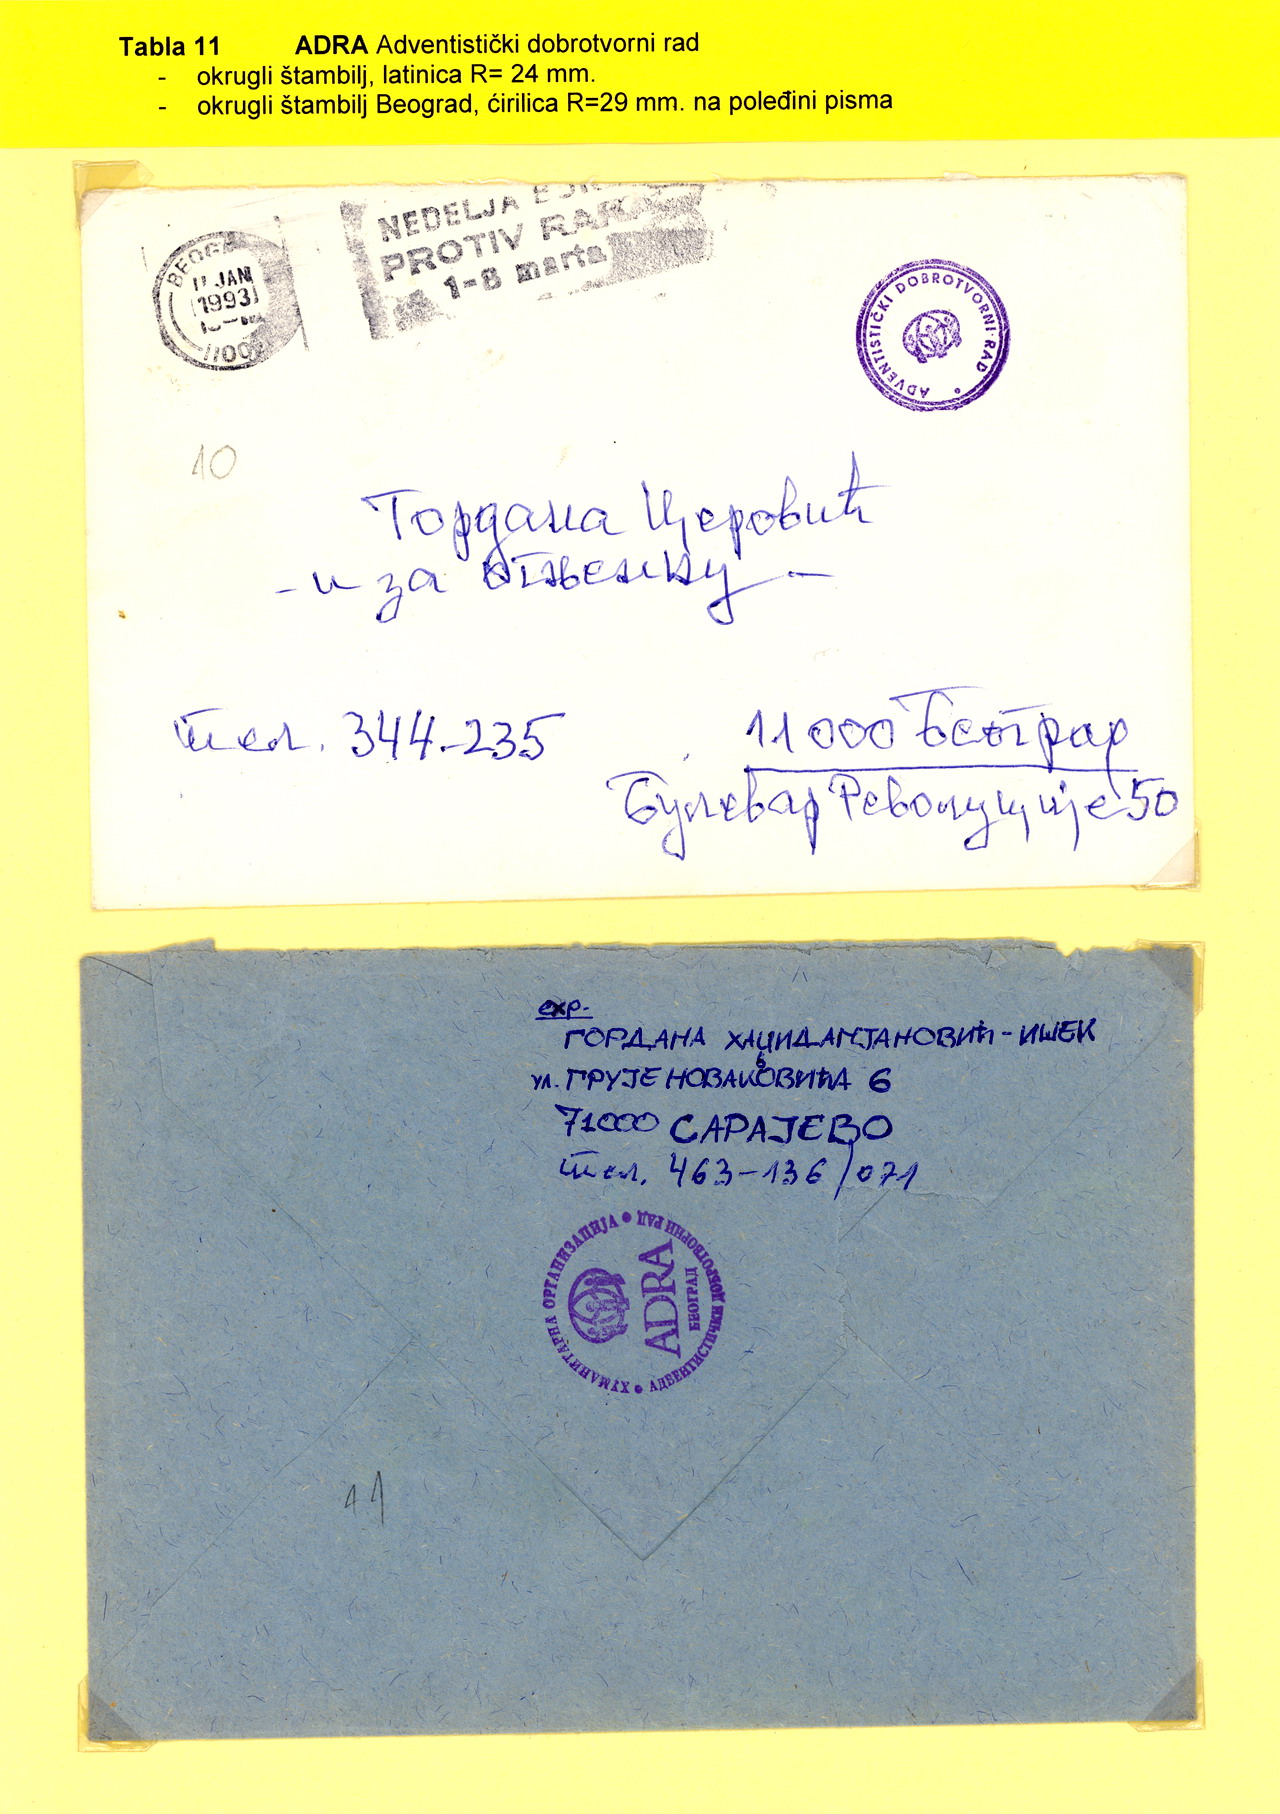 Tabla 11 ADRA Adventistički dobrotvorni rad
- okrugli štambilj, latinica R= 24 mm.
- okrugli štambilj Beograd, ćirilica R=29 mm. na poleđini pisma
NEDELJA
PROTIV RAKA
1-8 marta
11 JAN
1993
ADVENTISTIČKI DOBROTVORNI RAD
10
Гордана Церовић
- и за Огњенку -
тел. 344-235
11000 Београд
Булевар Револуције 50
exp.
ГОРДАНА ХАЏИДАМЈАНОВИЋ-ИШЕК
ул. ГРУЈЕ НОВАКОВИЋА 6
71000 САРАЈЕВО
тел. 463-136/071
ХУМАНИТАРНА ОРГАНИЗАЦИЈА • АДВЕНТИСТИЧКИ ДОБРОТВОРНИ РАД •
ADRA
БЕОГРАД
11